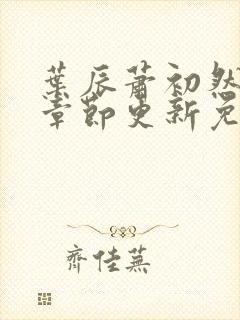 葉辰蕭初然
章節更新免
齊佳蕪